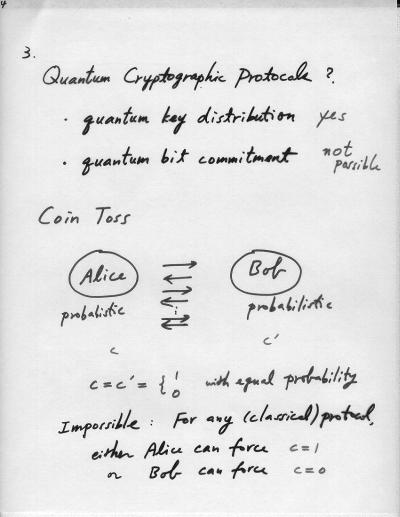 3.
Quantum Cryptographic Protocols ?
· quantum key distribution yes
· quantum bit commitment not possible
Coin Toss
Alice Bob
probalistic probabilistic
c c'
c = c' = { 1 0 with equal probability
Impossible : For any (classical) protocol,
either Alice can force c=1
or Bob can force c=0